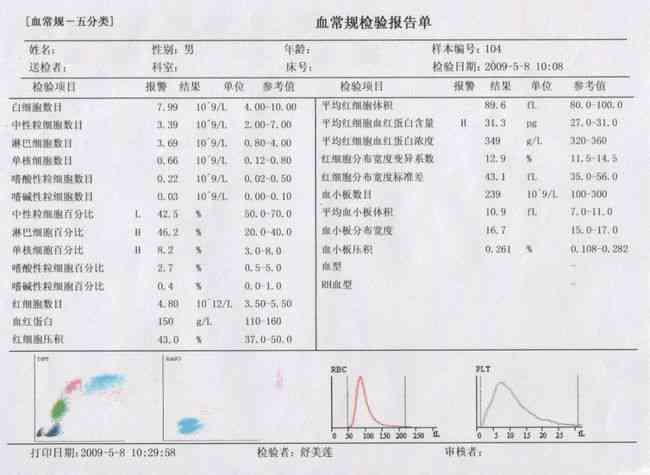 [血常规-五分类] 血常规检验报告单
姓名: 性别:男 年龄: 样本编号:104
送检者: 科室: 床号: 检验日期:2009-5-8 10:08
检验项目 报警 结果 单位 参考值 检验项目 报警 结果 单位 参考值
白细胞数目 7.99 10^9/L 4.00-10.00 平均红细胞体积 89.6 fL 80.0-100.0
中性粒细胞数目 3.39 10^9/L 2.00-7.00 平均红细胞血红蛋白含量 H 31.3 pg 27.0-31.0
淋巴细胞数目 3.69 10^9/L 0.80-4.00 平均红细胞血红蛋白浓度 349 g/L 320-360
单核细胞数目 0.66 10^9/L 0.12-0.80 红细胞分布宽度变异系数 12.9 % 11.5-14.5
嗜酸性粒细胞数目 0.22 10^9/L 0.02-0.50 红细胞分布宽度标准差 43.1 fL 35.0-56.0
嗜碱性粒细胞数目 0.03 10^9/L 0.00-0.10 血小板数目 239 10^9/L 100-300
中性粒细胞百分比 L 42.5 % 50.0-70.0 平均血小板体积 10.9 fL 7.0-11.0
淋巴细胞百分比 H 46.2 % 20.0-40.0 血小板分布宽度 16.7 15.0-17.0
单核细胞百分比 H 8.2 % 3.0-8.0 血小板压积 0.261 % 0.108-0.282
嗜酸性粒细胞百分比 2.7 % 0.5-5.0 血型 -
嗜碱性粒细胞百分比 0.4 % 0.0-1.0 RH血型 -
红细胞数目 4.80 10^12/L 3.50-5.50
血红蛋白 150 g/L 110-160
红细胞压积 43.0 % 37.0-50.0
DIFF BASO RBC PLT
0 50 100 150 200 250 fL 5 10 15 20 25 30 fL
打印日期:2009-5-8 10:29:58 检验者:舒美莲 审核者: